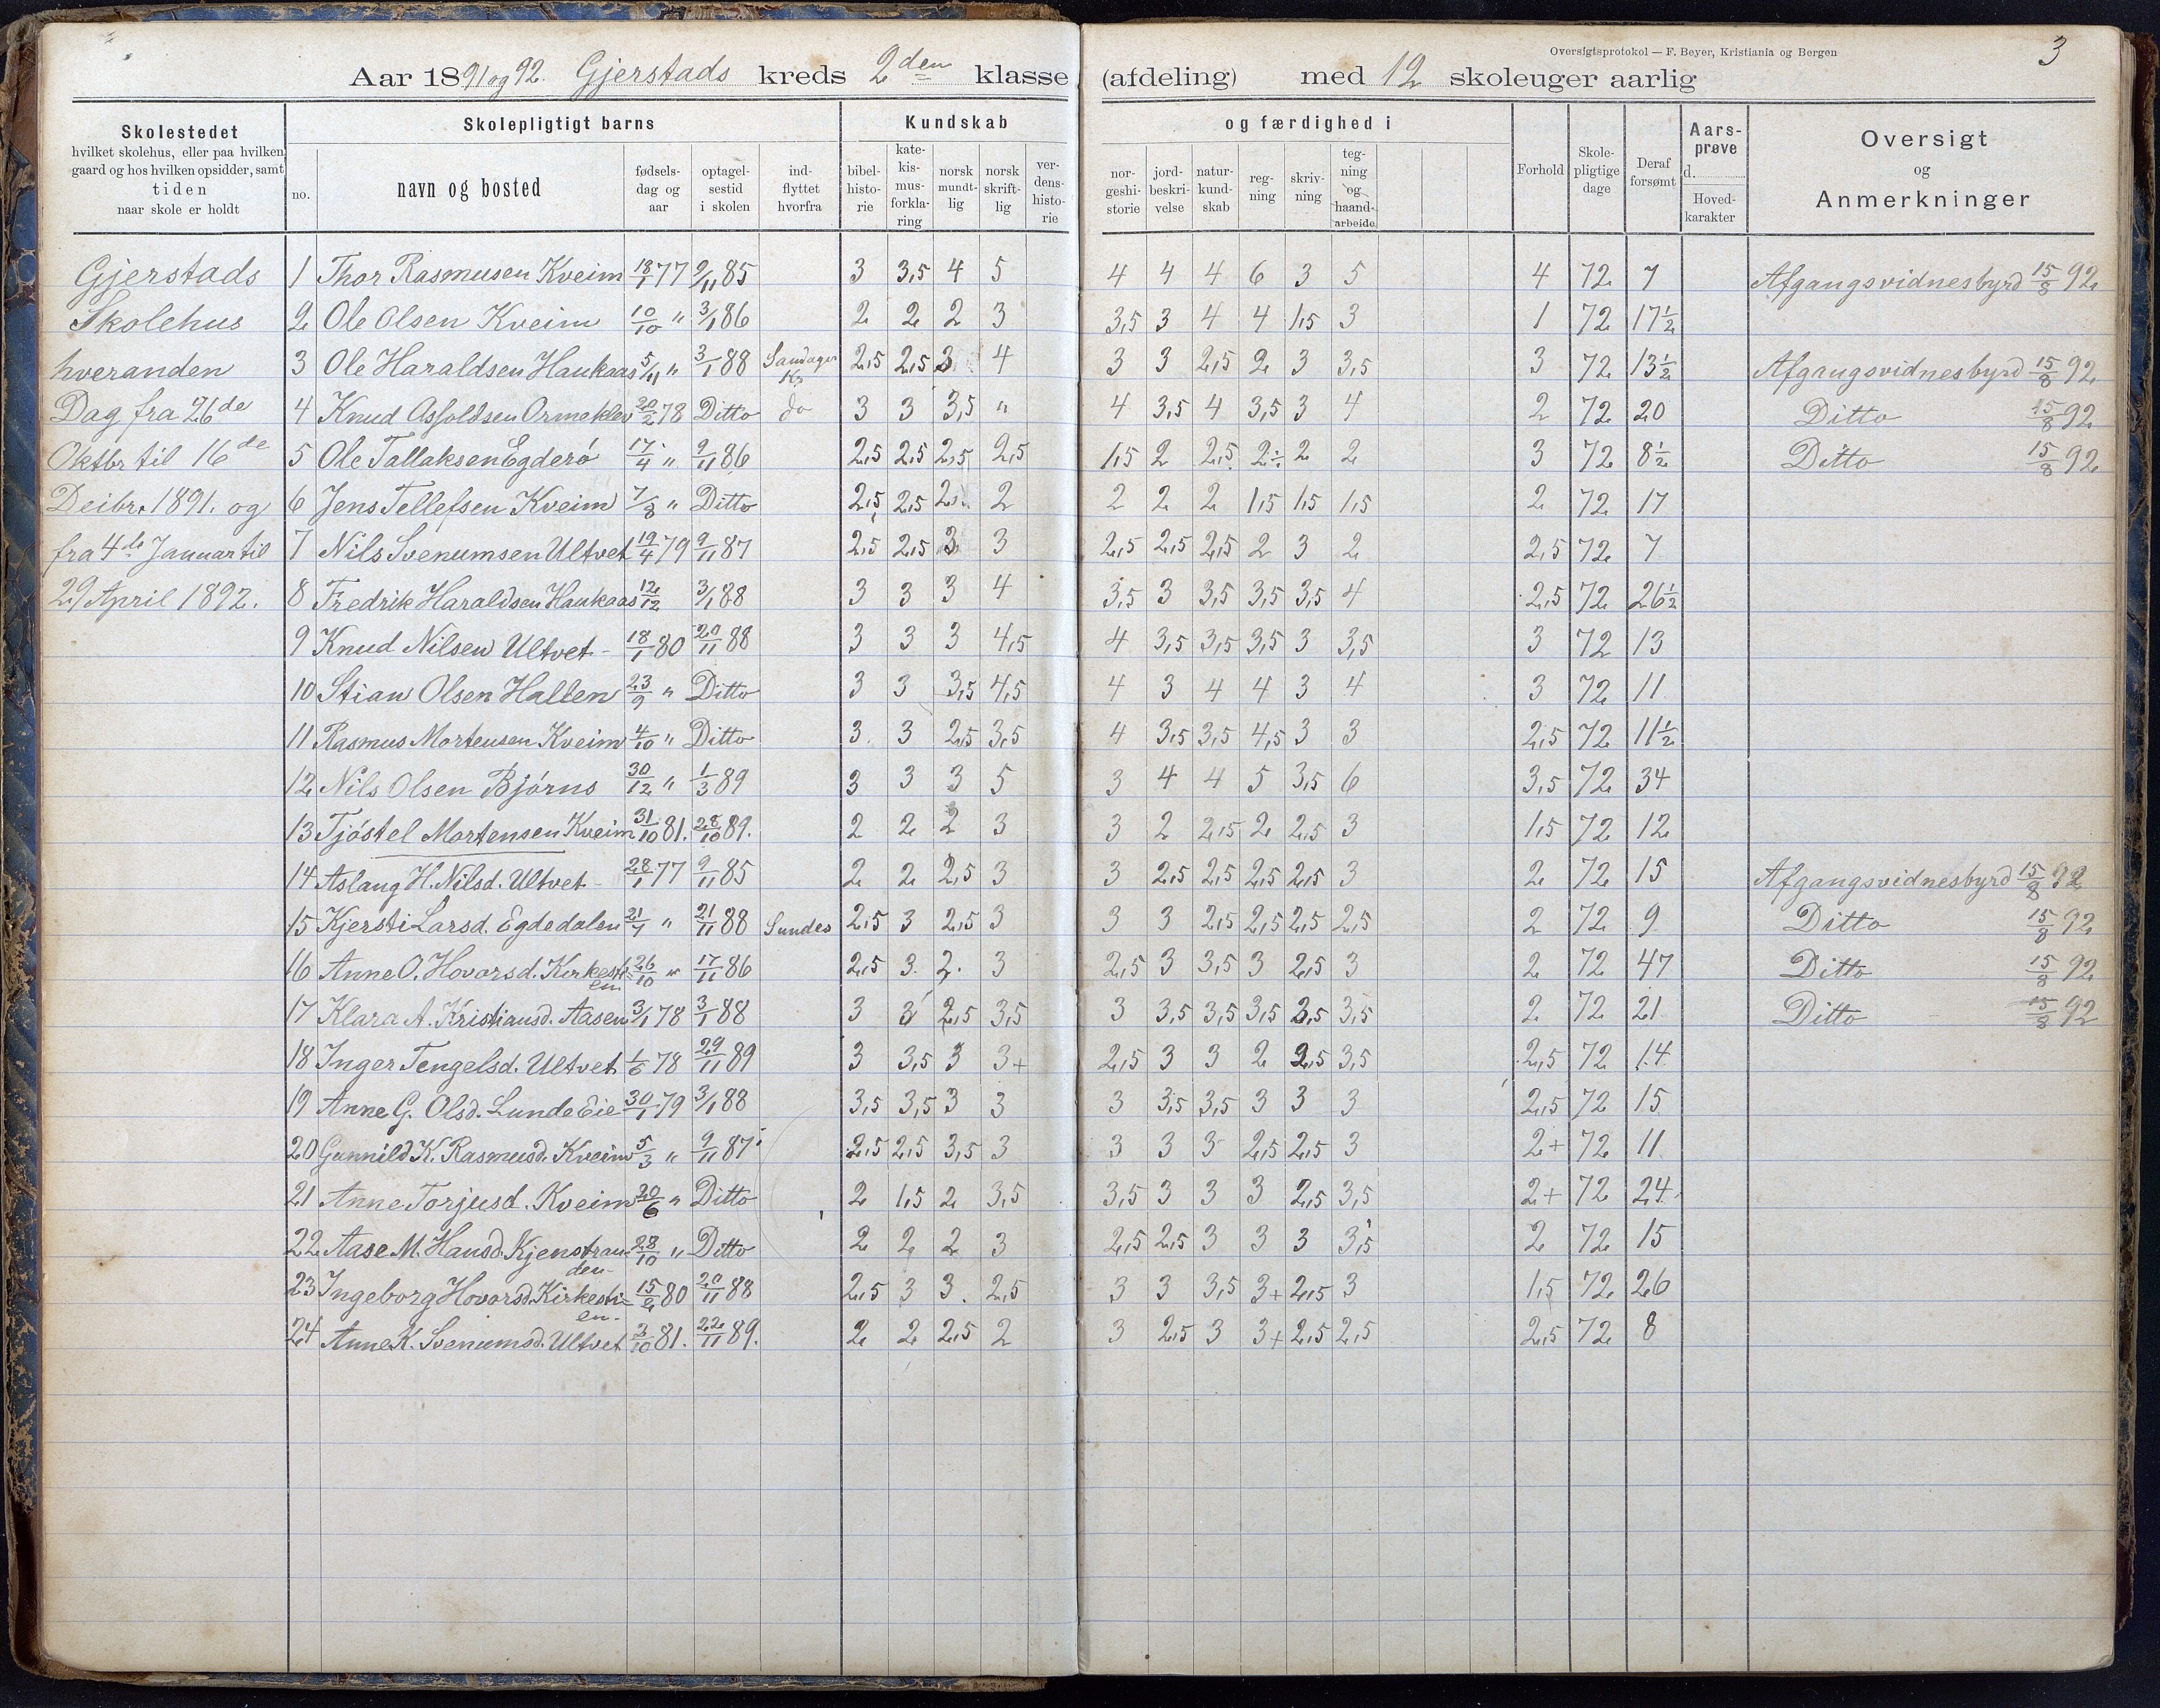 Oversigtsprotokol — F. Beyer, Kristiania og Bergen
3
Aar 1891 og 92. Gjerstads kreds 2den klasse (afdeling) med 12 skoleuger aarlig
Skolestedet
hvilket skolehus, eller paa hvilken
gaard og hos hvilken opsidder, samt
tiden
naar skole er holdt
Skolepligtigt barns
no.
navn og bosted
fødsels-
dag og
aar
optagel-
sestid
i skolen
ind-
flyttet
hvorfra
Kundskab og færdighed i
bibel-
histo-
rie
kate-
kis-
mus-
forkla-
ring
norsk
mundt-
lig
norsk
skrift-
lig
ver-
dens-
histo-
rie
nor-
geshi-
storie
jord-
beskri-
velse
natur-
kund-
skab
reg-
ning
skriv-
ning
teg-
ning
og
haand-
arbeide
Forhold
Skole-
pligtige
dage
Deraf
forsømt
Aars-
prøve
d.
Hoved-
karakter
Oversigt
og
Anmerkninger
Gjerstads
Skolehus
hveranden
Dag fra 26de
Oktbr til 16de
Deibr. 1891. og
fra 4de Januar til
29 April 1892.
1 Thor Rasmusen Kveim 18/1 77 9/11 85 3 3,5 4 5 4 4 4 6 3 5 4 72 7 Afgangsvidnesbyrd 15/8 92
2 Ole Olsen Kveim 10/10 " 3/1 86 2 2 2 3 3,5 3 4 4 1,5 3 1 72 17½
3 Ole Haraldsen Haukaas 5/11 " 3/1 88 Sandager Kr 2,5 2,5 3 4 3 3 2,5 2 3 3,5 3 72 13½ Afgangsvidnesbyrd 15/8 92
4 Knud Asfoldsen Ormeklev 20/2 78 Ditto do 3 3 3,5 " 4 3,5 4 3,5 3 4 2 72 20 Ditto 15/8 92
5 Ole Tallaksen Egderö 17/4 " 9/11 86 2,5 2,5 2,5 2,5 1,5 2 2,5 2÷ 2 2 3 72 8½ Ditto 15/8 92
6 Jens Tellefsen Kveim 7/8 " Ditto 2,5 2,5 2 2 2 2 2 1,5 1,5 1,5 2 72 17
7 Nils Svenumsen Ultvet 19/4 79 9/11 87 2,5 2,5 3 3 2,5 2,5 2,5 2 3 2 2,5 72 7
8 Fredrik Haraldsen Haukaas 12/12 3/1 88 3 3 3 4 3,5 3 3,5 3,5 3,5 4 2,5 72 26½
9 Knud Nilsen Ultvet 18/1 80 20/11 88 3 3 3 4,5 4 3,5 3,5 3,5 3 3,5 3 72 13
10 Stian Olsen Halten 23/9 " Ditto 3 3 3,5 4,5 4 3 4 4 3 4 3 72 11
11 Rasmus Mortensen Kveim 4/10 " Ditto 3 3 2,5 3,5 4 3,5 3,5 4,5 3 3 2,5 72 11½
12 Nils Olsen Bjórns 30/12 " 1/3 89 3 3 3 5 3 4 4 5 3,5 6 3,5 72 34
13 Tjöstel Mortensen Kveim 31/10 81. 28/10 89. 2 2 2 3 3 2 2,5 2 2,5 3 1,5 72 12
14 Aslaug H. Nilsd. Ultvet 28/1 77 9/11 85 2 2 2,5 3 3 2,5 2,5 2,5 2,5 3 2 72 15 Afgangsvidnesbyrd 15/8 92
15 Kjersti Larsd. Egdedalen 21/7 " 21/11 88 Sundes 2,5 3 2,5 3 3 3 2,5 2,5 2,5 2,5 2 72 9 Ditto 15/8 92
16 Anne O. Hovorsd. Kirkesti=en. 26/10 " 17/11 86 2,5 3 2 3 2,5 3 3,5 3 2,5 3 2 72 47 Ditto 15/8 92
17 Klara A. Kristiansd. Aasen 3/1 78 3/1 88 3 3 2,5 3,5 3 3,5 3,5 3,5 2,5 3,5 2 72 21 Ditto 15/8 92
18 Inger Tengelsd. Ultvet 1/6 78 29/11 89 3 3,5 3 3+ 2,5 3 3 2 2,5 3,5 2,5 72 14
19 Anne G. Olsd. Lunde Eie 30/1 79 3/1 88 3,5 3,5 3 3 3 3,5 3,5 3 3 3 2,5 72 15
20 Gunnild K. Rasmusd. Kveim 5/3 " 9/11 87 2,5 2,5 3,5 3 3 3 3 2,5 2,5 3 2+ 72 11
21 Anne Torjusd. Kveim 20/6 " Ditto 2 1,5 2 3,5 3,5 3 3 3 2,5 3,5 2+ 72 24
22 Aase M. Hansd. Kjenstran=den. 28/10 " Ditto 2 2 2 3 2,5 2,5 3 3 3 3,5 2 72 15
23 Ingeborg Hovorsd. Kirkesti=en. 15/2 80 20/11 88 2,5 3 3 2,5 3 3 3,5 3+ 2,5 3 1,5 72 26
24 Anne K. Svenumsd. Ultvet 3/10 81. 22/11 89. 2 2 2,5 2 3 2,5 3 3+ 2,5 2,5 2,5 72 8